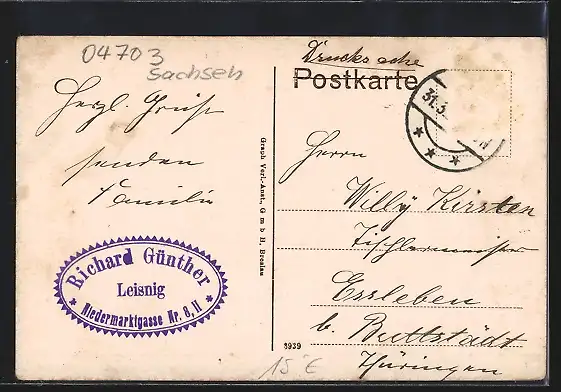 04703
Sachsen
Drucksache
Postkarte
31.3.
Herzl. Grüße
senden
Familie
Richard Günther
Leisnig
Niedermarktgasse Nr. 8, II
Graph. Verl.-Anst., G m b H, Breslau
Herrn
Willy Kirsten
Tischlermeister
Essleben
b. Buttstädt
Thüringen
3939
15 €